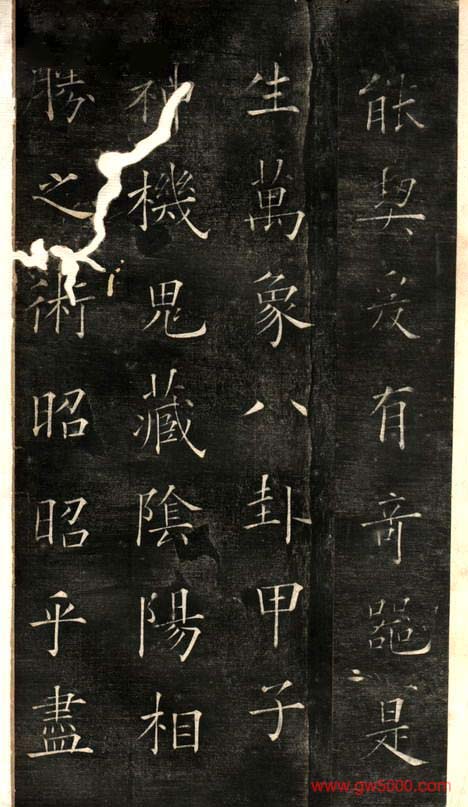 能契爰有奇器是
生萬象八卦甲子
神機鬼藏陰陽相
勝之術昭昭乎盡
www.gw5000.com